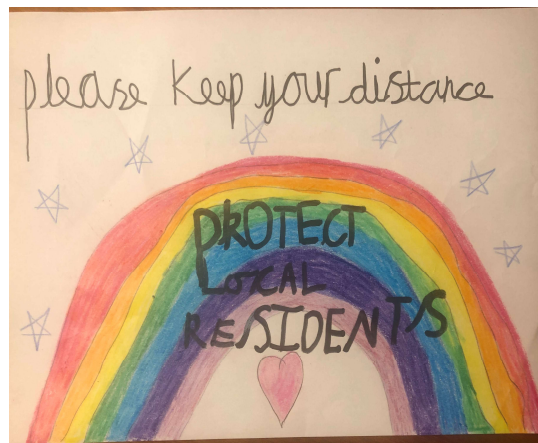 please keep your distance
PROTECT
LOCAL
RESIDENT/S